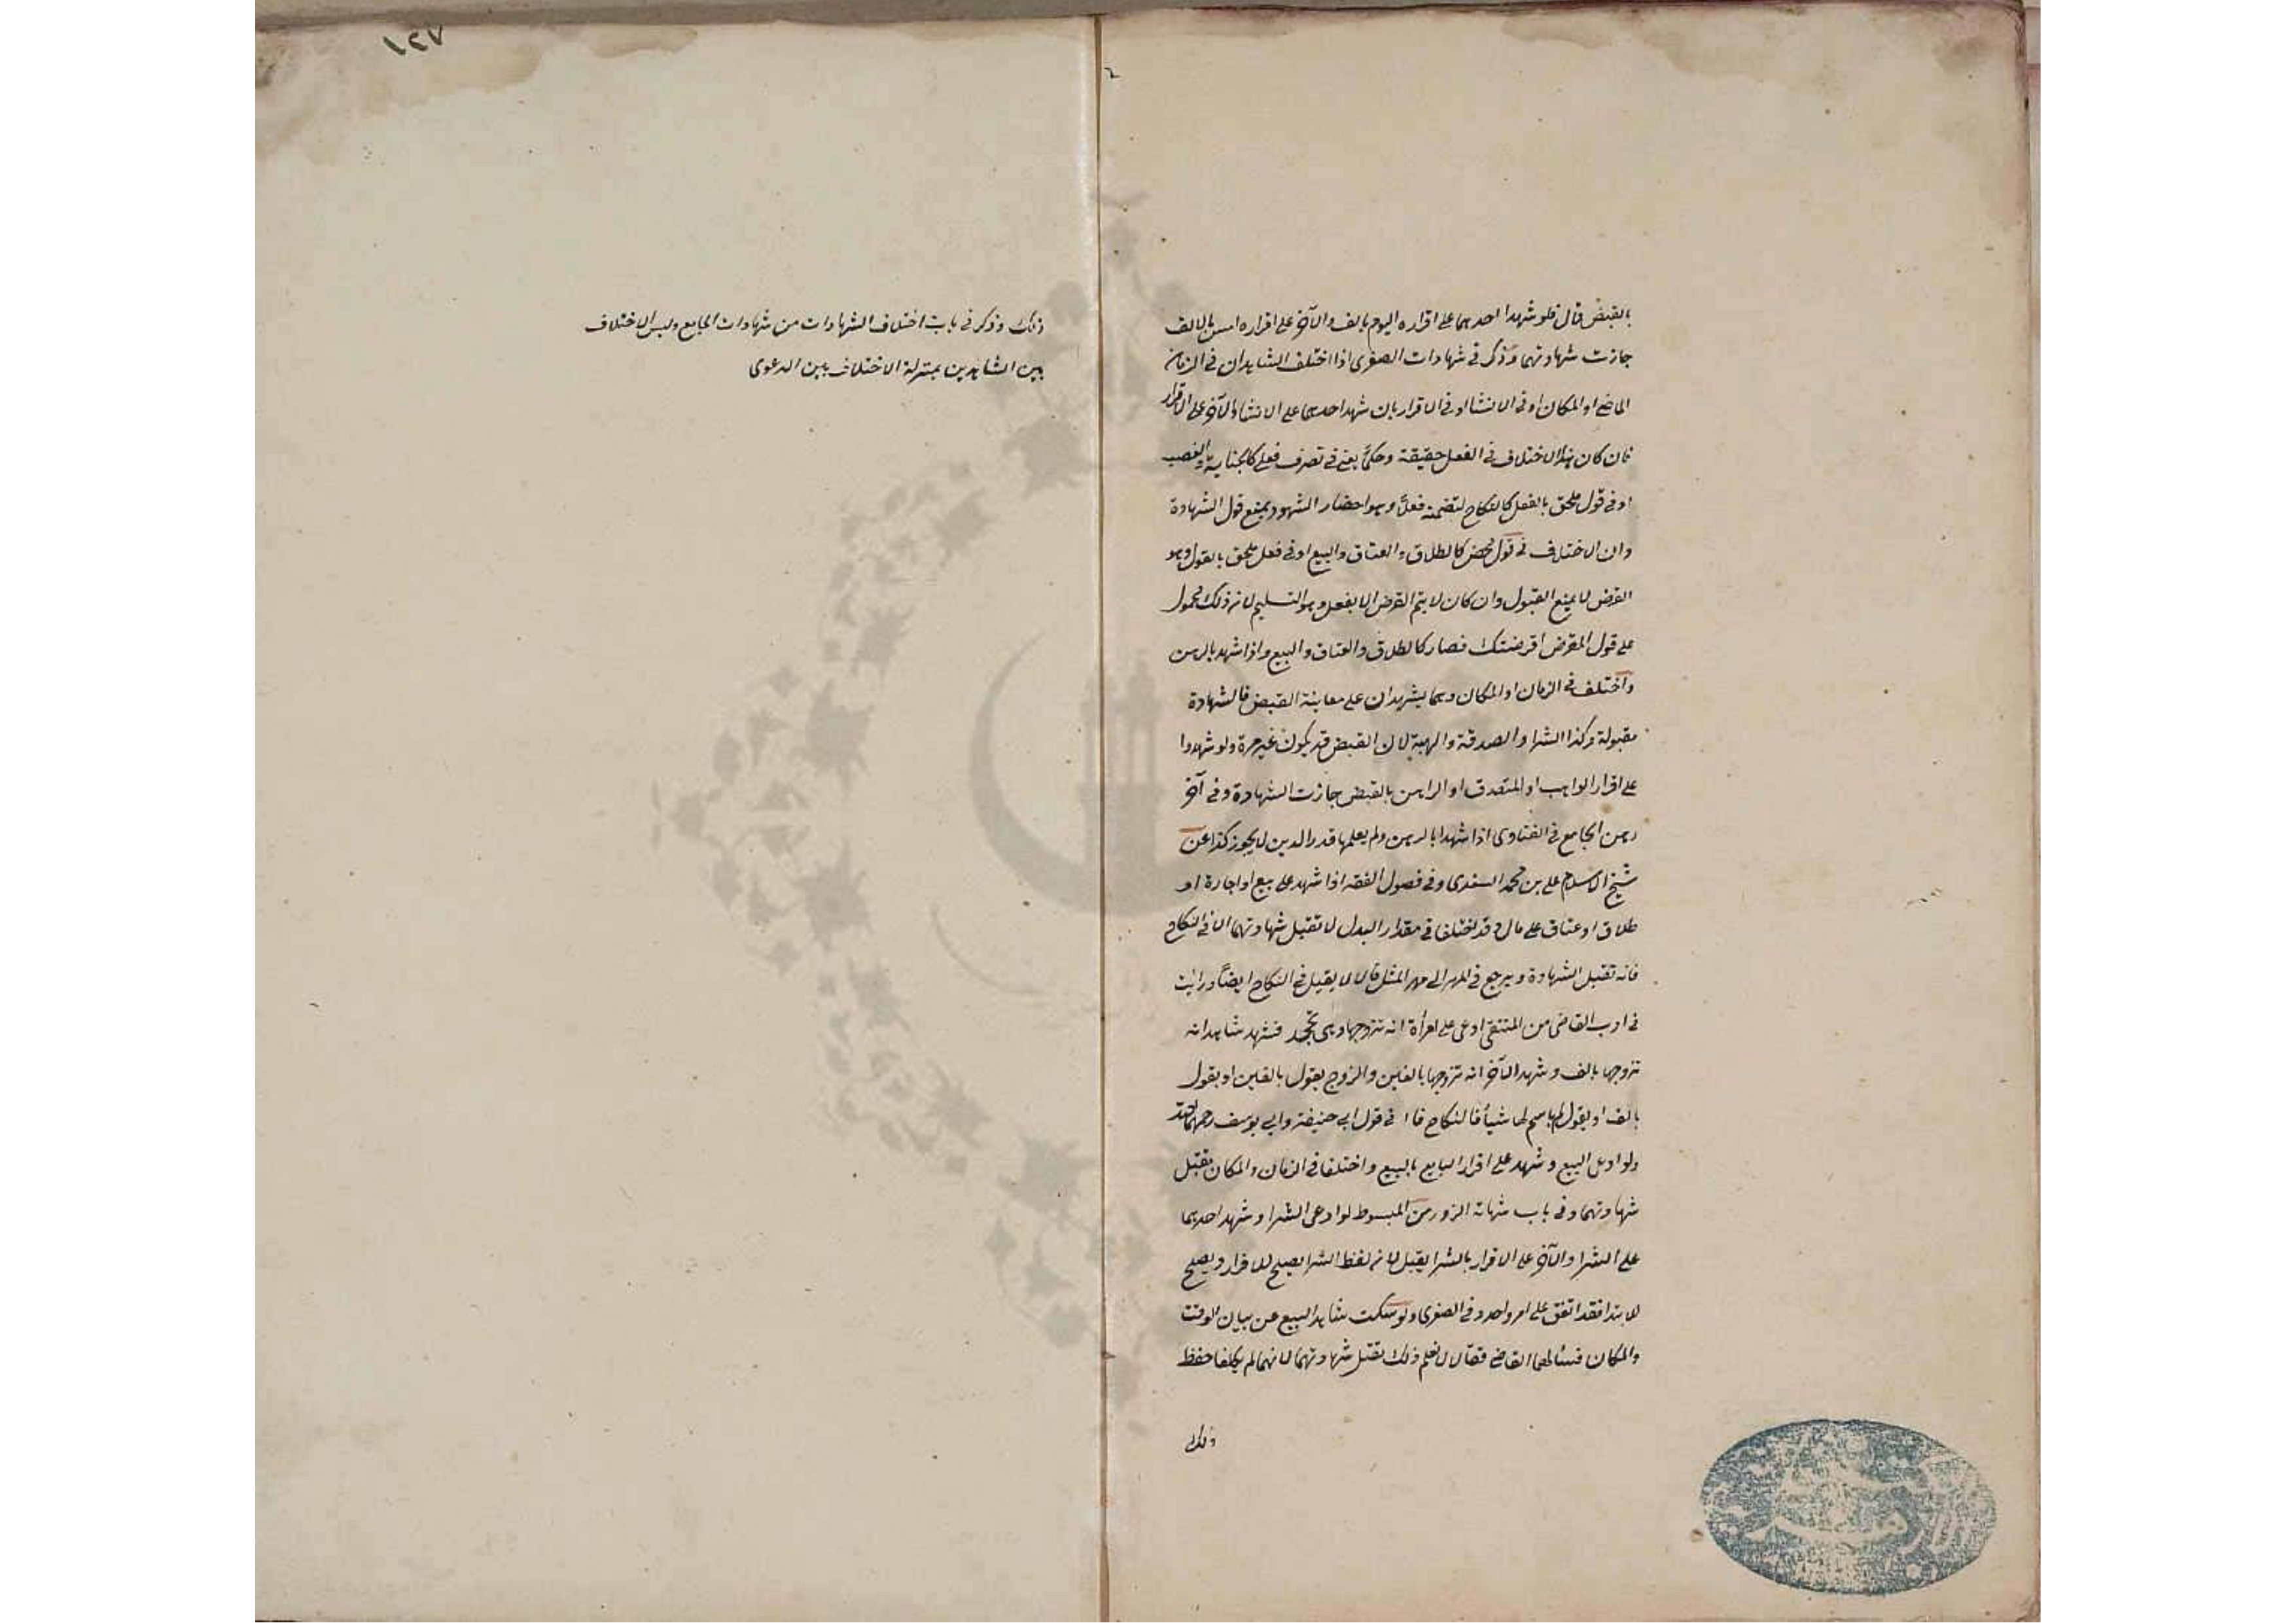 بالقبض قال فلو شهد احدهما على اقراره اليوم بالف والآخر على اقراره امس بالالف
جازت شهادتهما وذكر في شهادات الصغرى اذا اختلف الشاهدان في الزمان
الماضي او المكان او في الانشا او في الاقرار بان شهد احدهما على الانشا والآخر على الاقرار
فان كان هذا الاختلاف في الفعل حقيقة وحكماً يعني في تصرف فعلي كالجناية والغصب
او في قول ملحق بالفعل كالنكاح لتضمنه فعلاً وهو احضار الشهود يمنع قبول الشهادة
وان الاختلاف في قول محض كالطلاق والعتاق والبيع او في فعل ملحق بالقول وهو
القرض لا يمنع القبول وان كان لا يتم القرض الا بفعل وهو التسليم لانه ذلك محمول
على قول المقرض اقرضتك فصار كالطلاق والعتاق والبيع واذا شهد بالرهن
واختلف في الزمان او المكان وهما يشهدان على معاينة القبض فالشهادة
مقبولة وكذا الشرا والصدقة والهبة لان القبض قد يكون غير مرة ولو شهدوا
على اقرار الواهب او المتصدق او الراهن بالقبض جازت الشهادة وفي آخر
رهن الجامع في الفتاوى اذا شهدا بالرهن ولم يعلما قدر الدين لا يجوز كذا عن
شيخ الاسلام على بن محمد السغدى وفي فصول الفقه اذا شهد على بيع او اجارة او
طلاق او عتاق على مال وقد اختلفا في مقدار البدل لا تقبل شهادتهما الا في النكاح
فانه تقبل الشهادة ويرجع في المهر الى مهر المثل قالا لا يقبل في النكاح ايضاً ورايت
في ادب القاضى من المنتقى ادعى على امرأة انه تزوجها وهى تجحد فشهد شاهد انه
تزوجها بالف وشهد الآخر انه تزوجها بالفين والزوج يقول بالفين او يقول
بالف او يقول لم اسم لها شيأ فالنكاح في قول ابي حنيفة وابي يوسف رحمهما
ولو ادعى البيع وشهد على اقرار البايع بالبيع واختلفا في الزمان والمكان تقبل
شهادتهما وفي باب شهادة الزور من المبسوط لو ادعى الشرا وشهد احدهما
على الشرا والآخر على الاقرار بالشرا يقبل لانه لفظ الشرا يصلح للاقرار ويصلح
للابتدا فقد اتفق على امر واحد وفي الصغرى ولو سكت شاهد البيع عن بيان الوقت
والمكان فسألهما القاضى فقالا لا نعلم ذلك تقبل شهادتهما لانهما لم يكلفا حفظ
ذلك
١٢٧
ذلك وذكر في باب اختلاف الشهادات من شهادات الجامع وليس الاختلاف
بين الشاهدين بمنزلة الاختلاف بين الدعوى